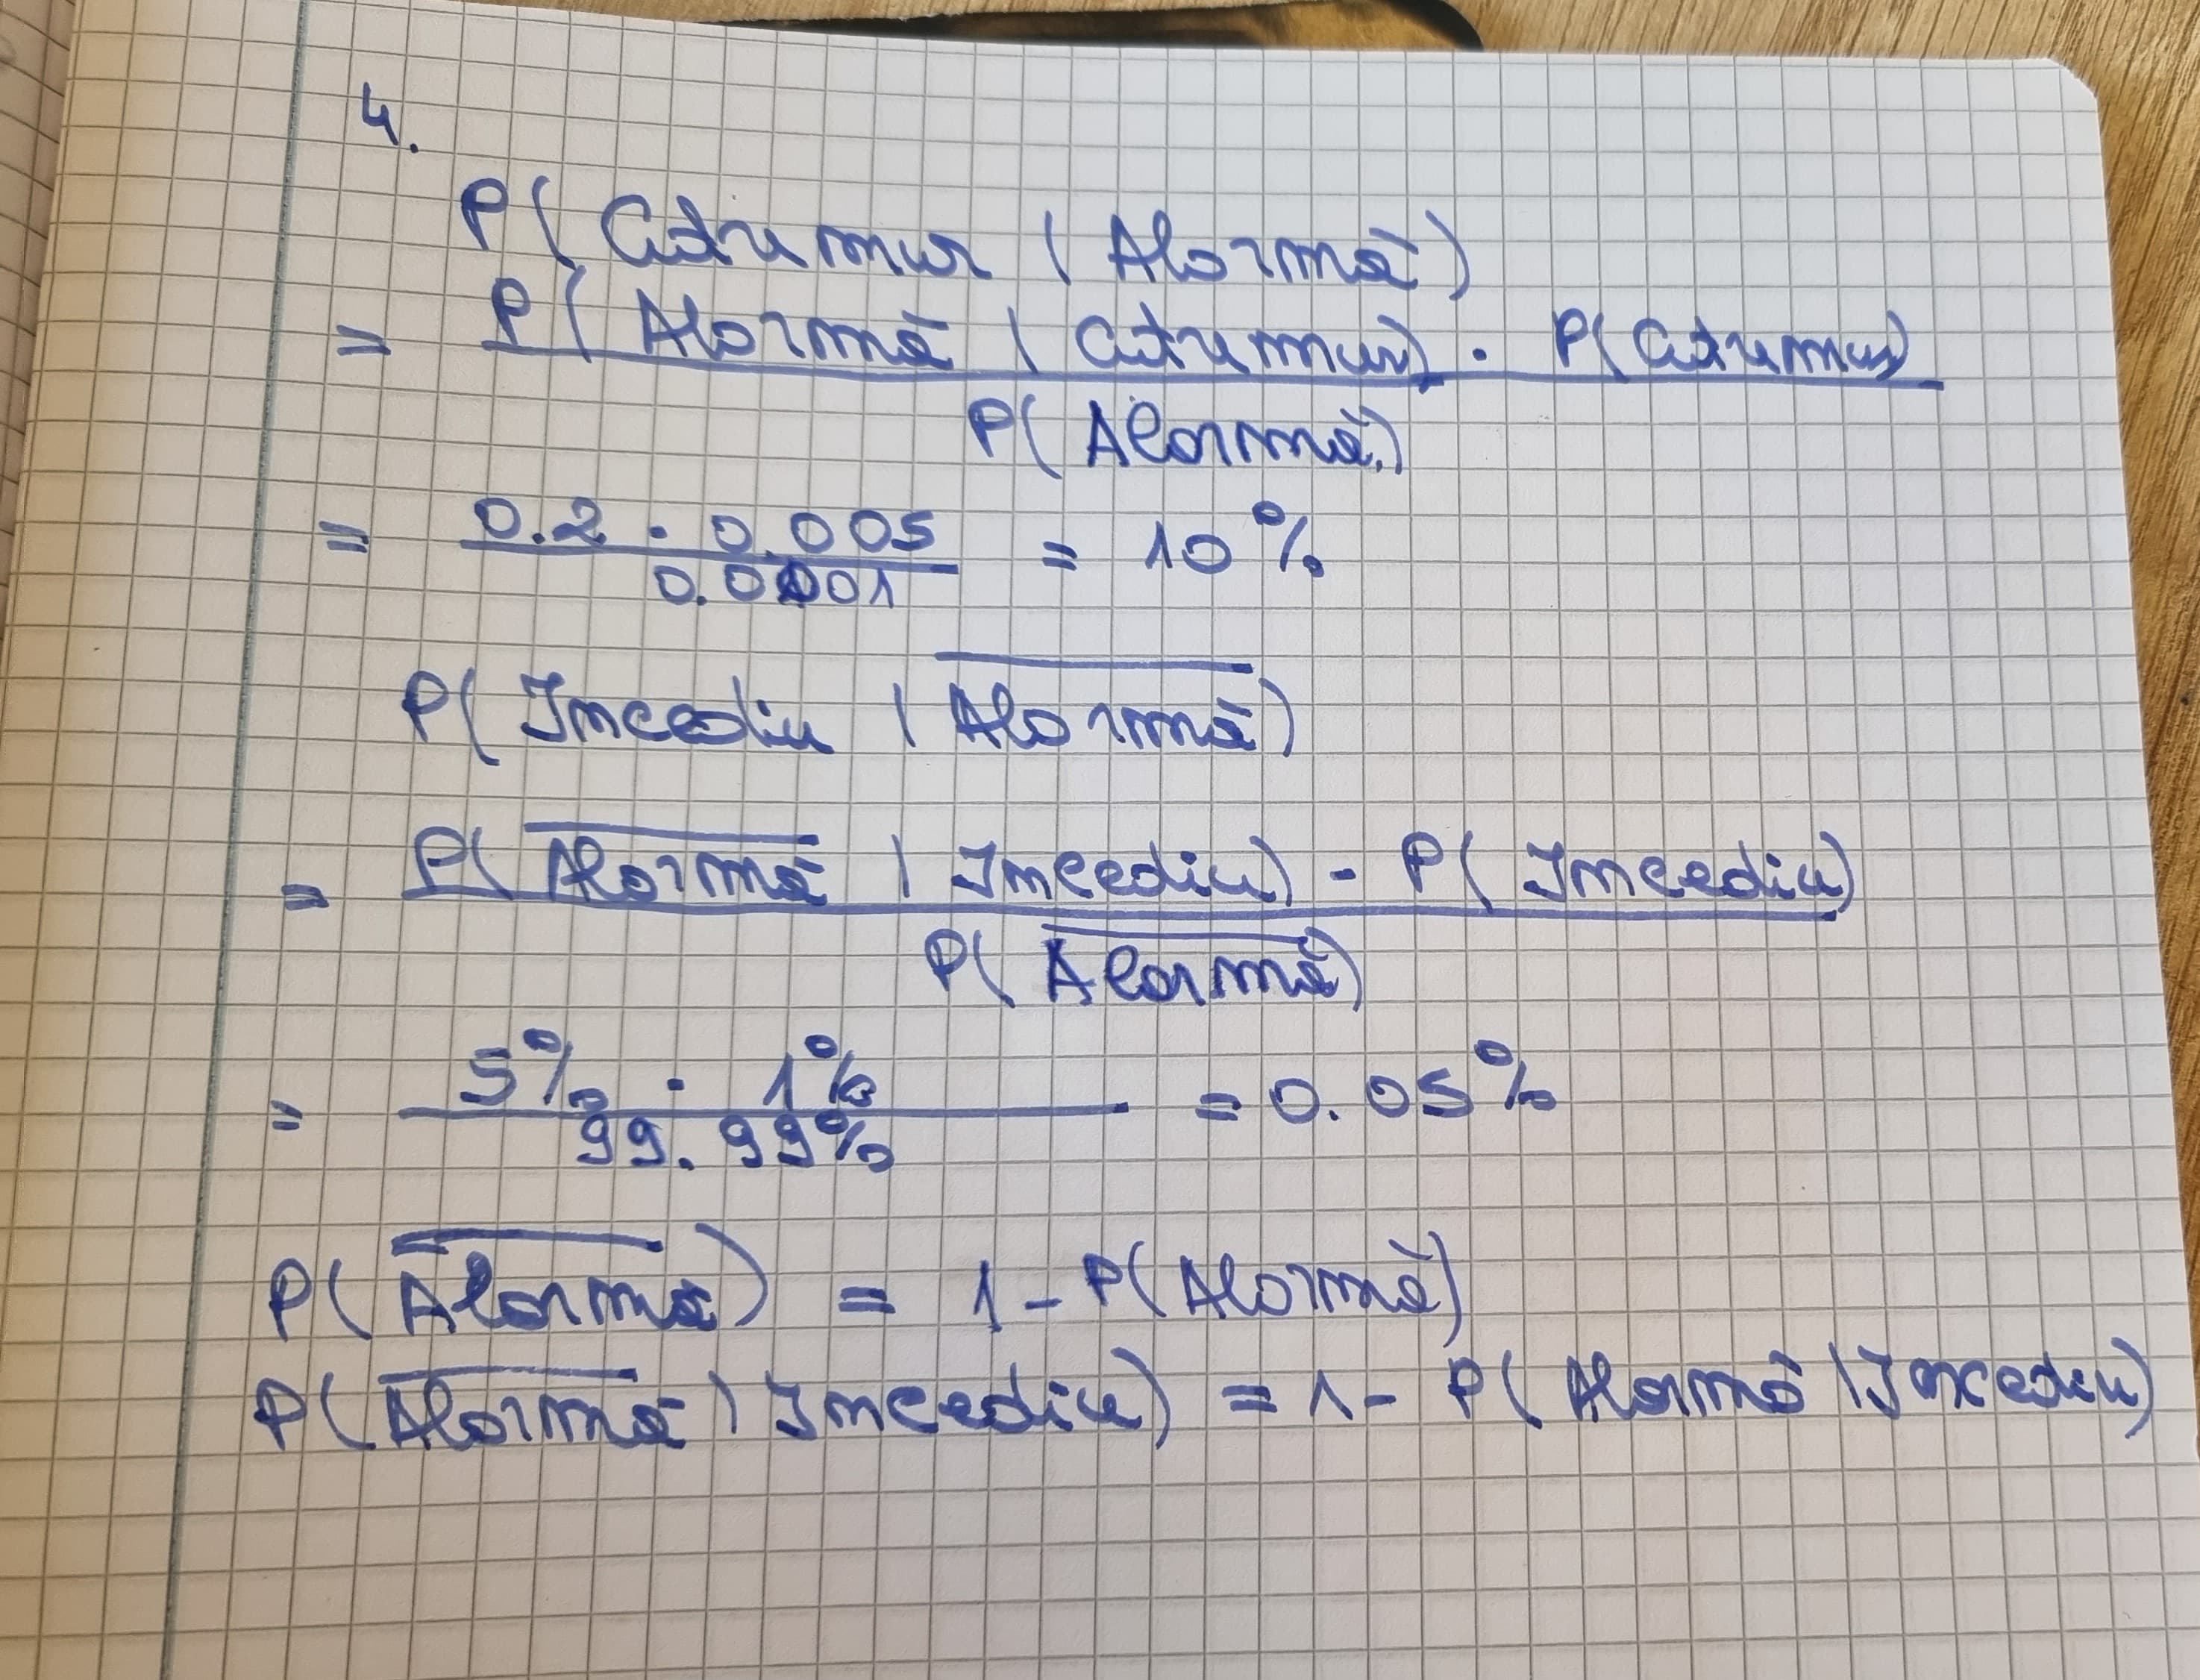 4.
P( Cutremur | Alarmă )
= P( Alarmă | Cutremur) · P(Cutremur)
P( Alarmă )
= 0.2 · 0.005 = 10%
0.0001
P( Incediu | Alarmă )
= P( Alarmă | Incediu) · P( Incediu)
P( Alarmă )
= 5% · 1% = 0.05%
99.99%
P( Alarmă ) = 1 - P(Alarmă)
P( Alarmă | Incediu) = 1 - P( Alarmă | Incediu)